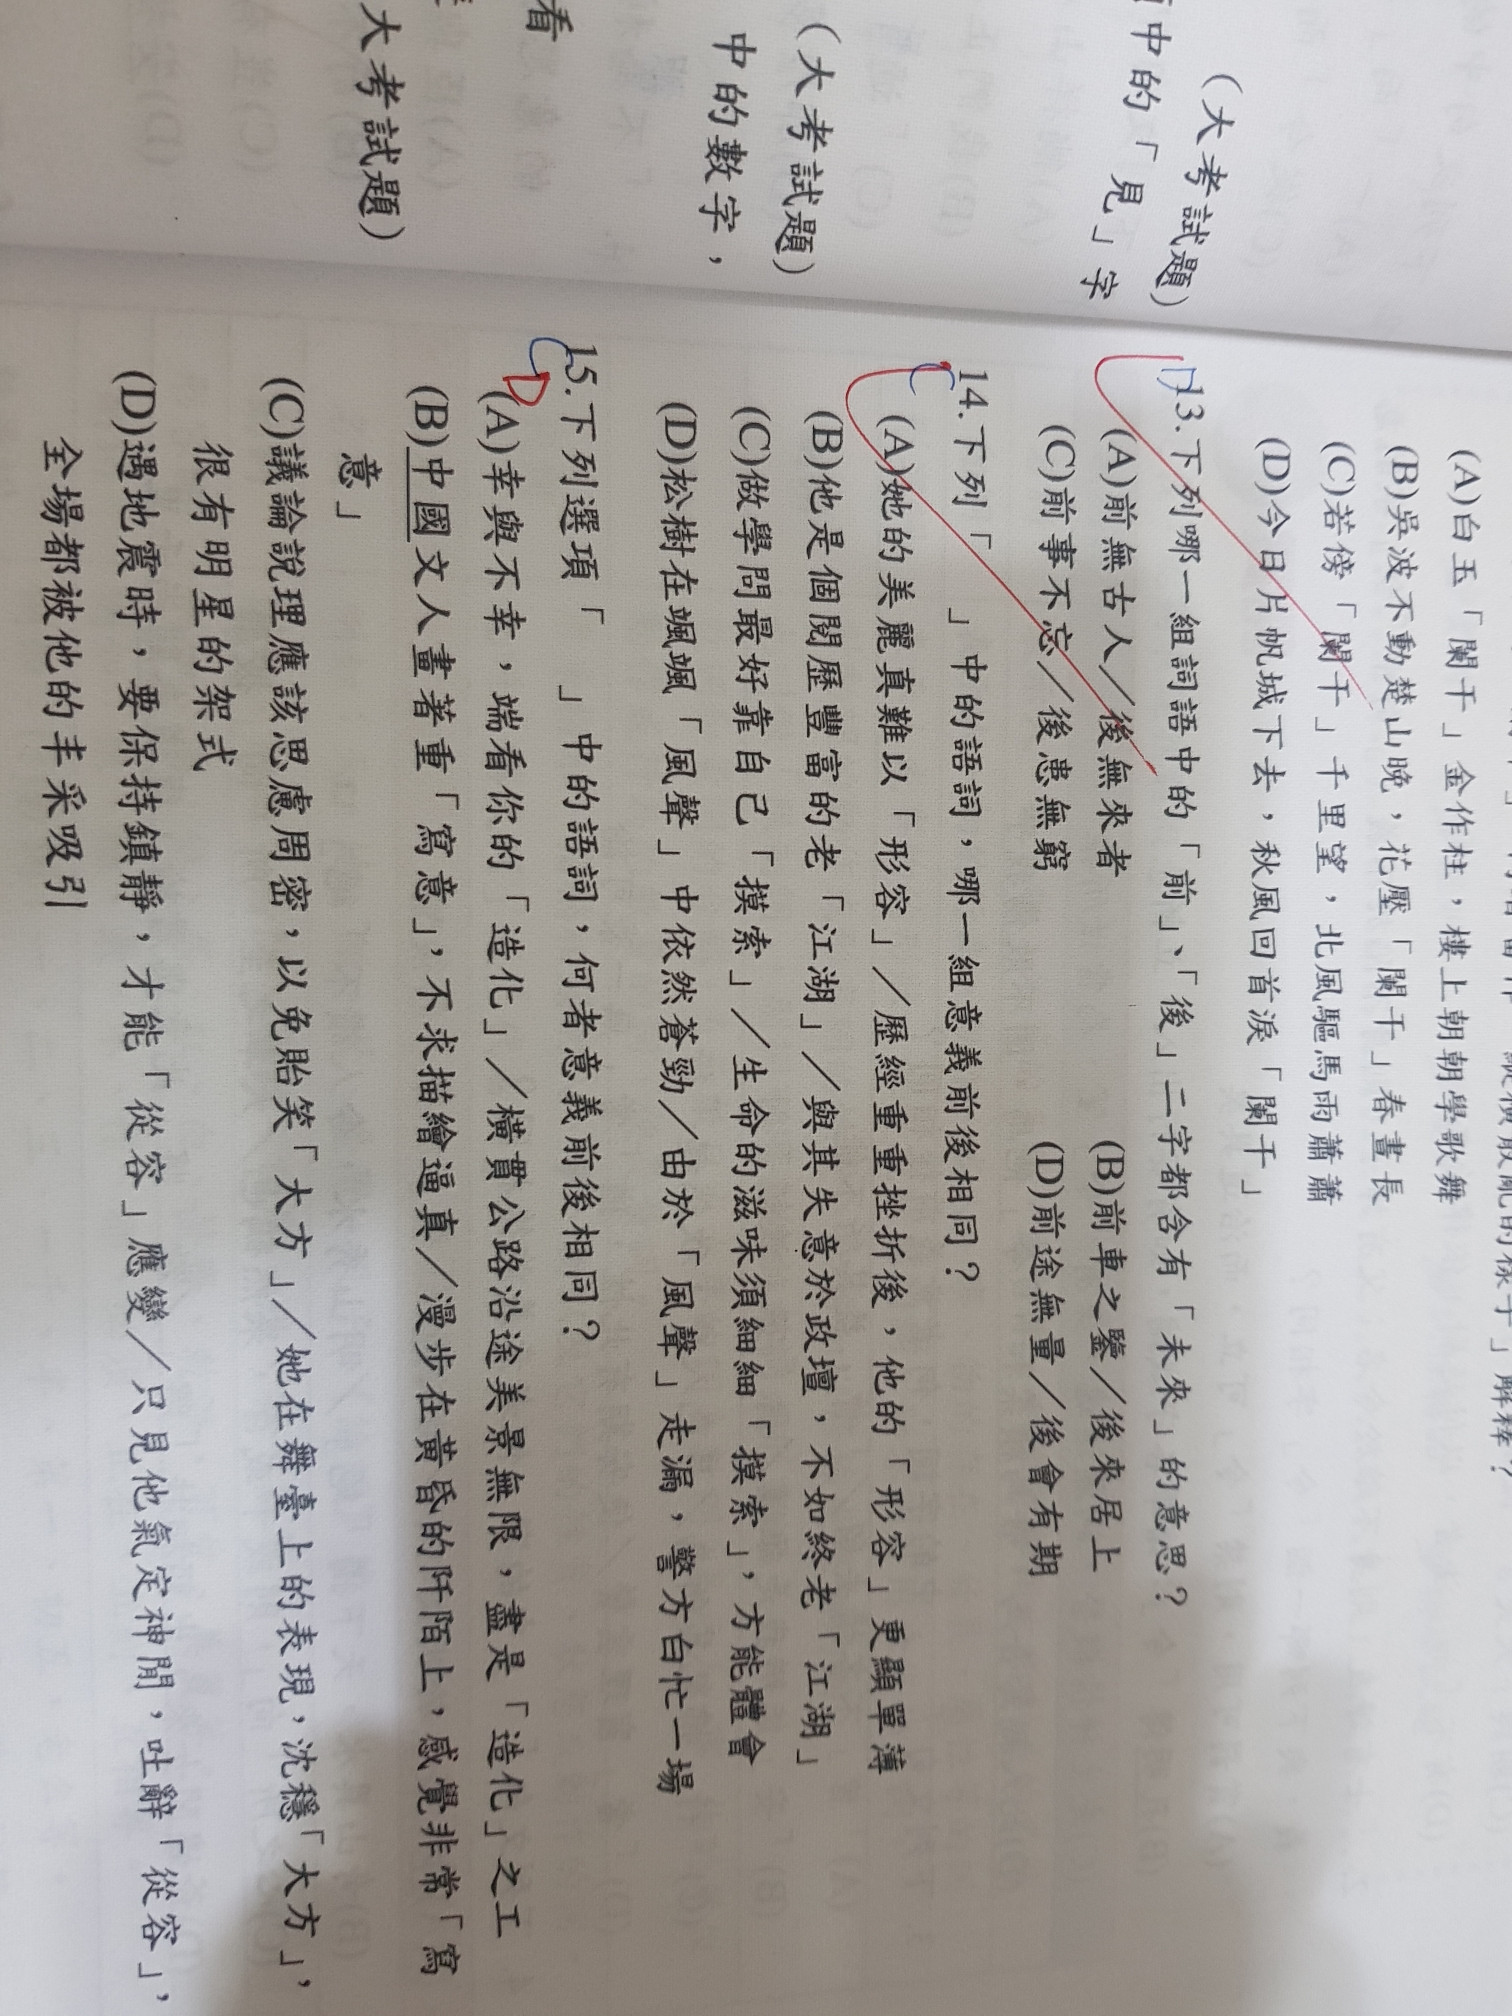 中的「見」字
(大考試題)
中的數字，
(大考試題)
看
大考試題)
解釋？
(A)白玉「闌干」金作柱，樓上朝朝學歌舞
(B)吳波不動楚山晚，花壓「闌干」春晝長
(C)若傍「闌干」千里望，北風驅馬雨蕭蕭
(D)今日片帆城下去，秋風回首淚「闌干」
D
13.下列哪一組詞語中的「前」、「後」二字都含有「未來」的意思？
(A)前無古人／後無來者 (B)前車之鑒／後來居上
(C)前事不忘／後患無窮 (D)前途無量／後會有期
C
14.下列「　」中的語詞，哪一組意義前後相同？
(A)她的美麗真難以「形容」／歷經重重挫折後，他的「形容」更顯單薄
(B)他是個閱歷豐富的老「江湖」／與其失意於政壇，不如終老「江湖」
(C)做學問最好靠自己「摸索」／生命的滋味須細細「摸索」，方能體會
(D)松樹在颯颯「風聲」中依然蒼勁／由於「風聲」走漏，警方白忙一場
C
D
15.下列選項「　」中的語詞，何者意義前後相同？
(A)幸與不幸，端看你的「造化」／橫貫公路沿途美景無限，盡是「造化」之工
(B)中國文人畫著重「寫意」，不求描繪逼真／漫步在黃昏的阡陌上，感覺非常「寫
意」
(C)議論說理應該思慮周密，以免貽笑「大方」／她在舞臺上的表現，沈穩「大方」，
很有明星的架式
(D)遇地震時，要保持鎮靜，才能「從容」應變／只見他氣定神閒，吐辭「從容」，
全場都被他的丰采吸引